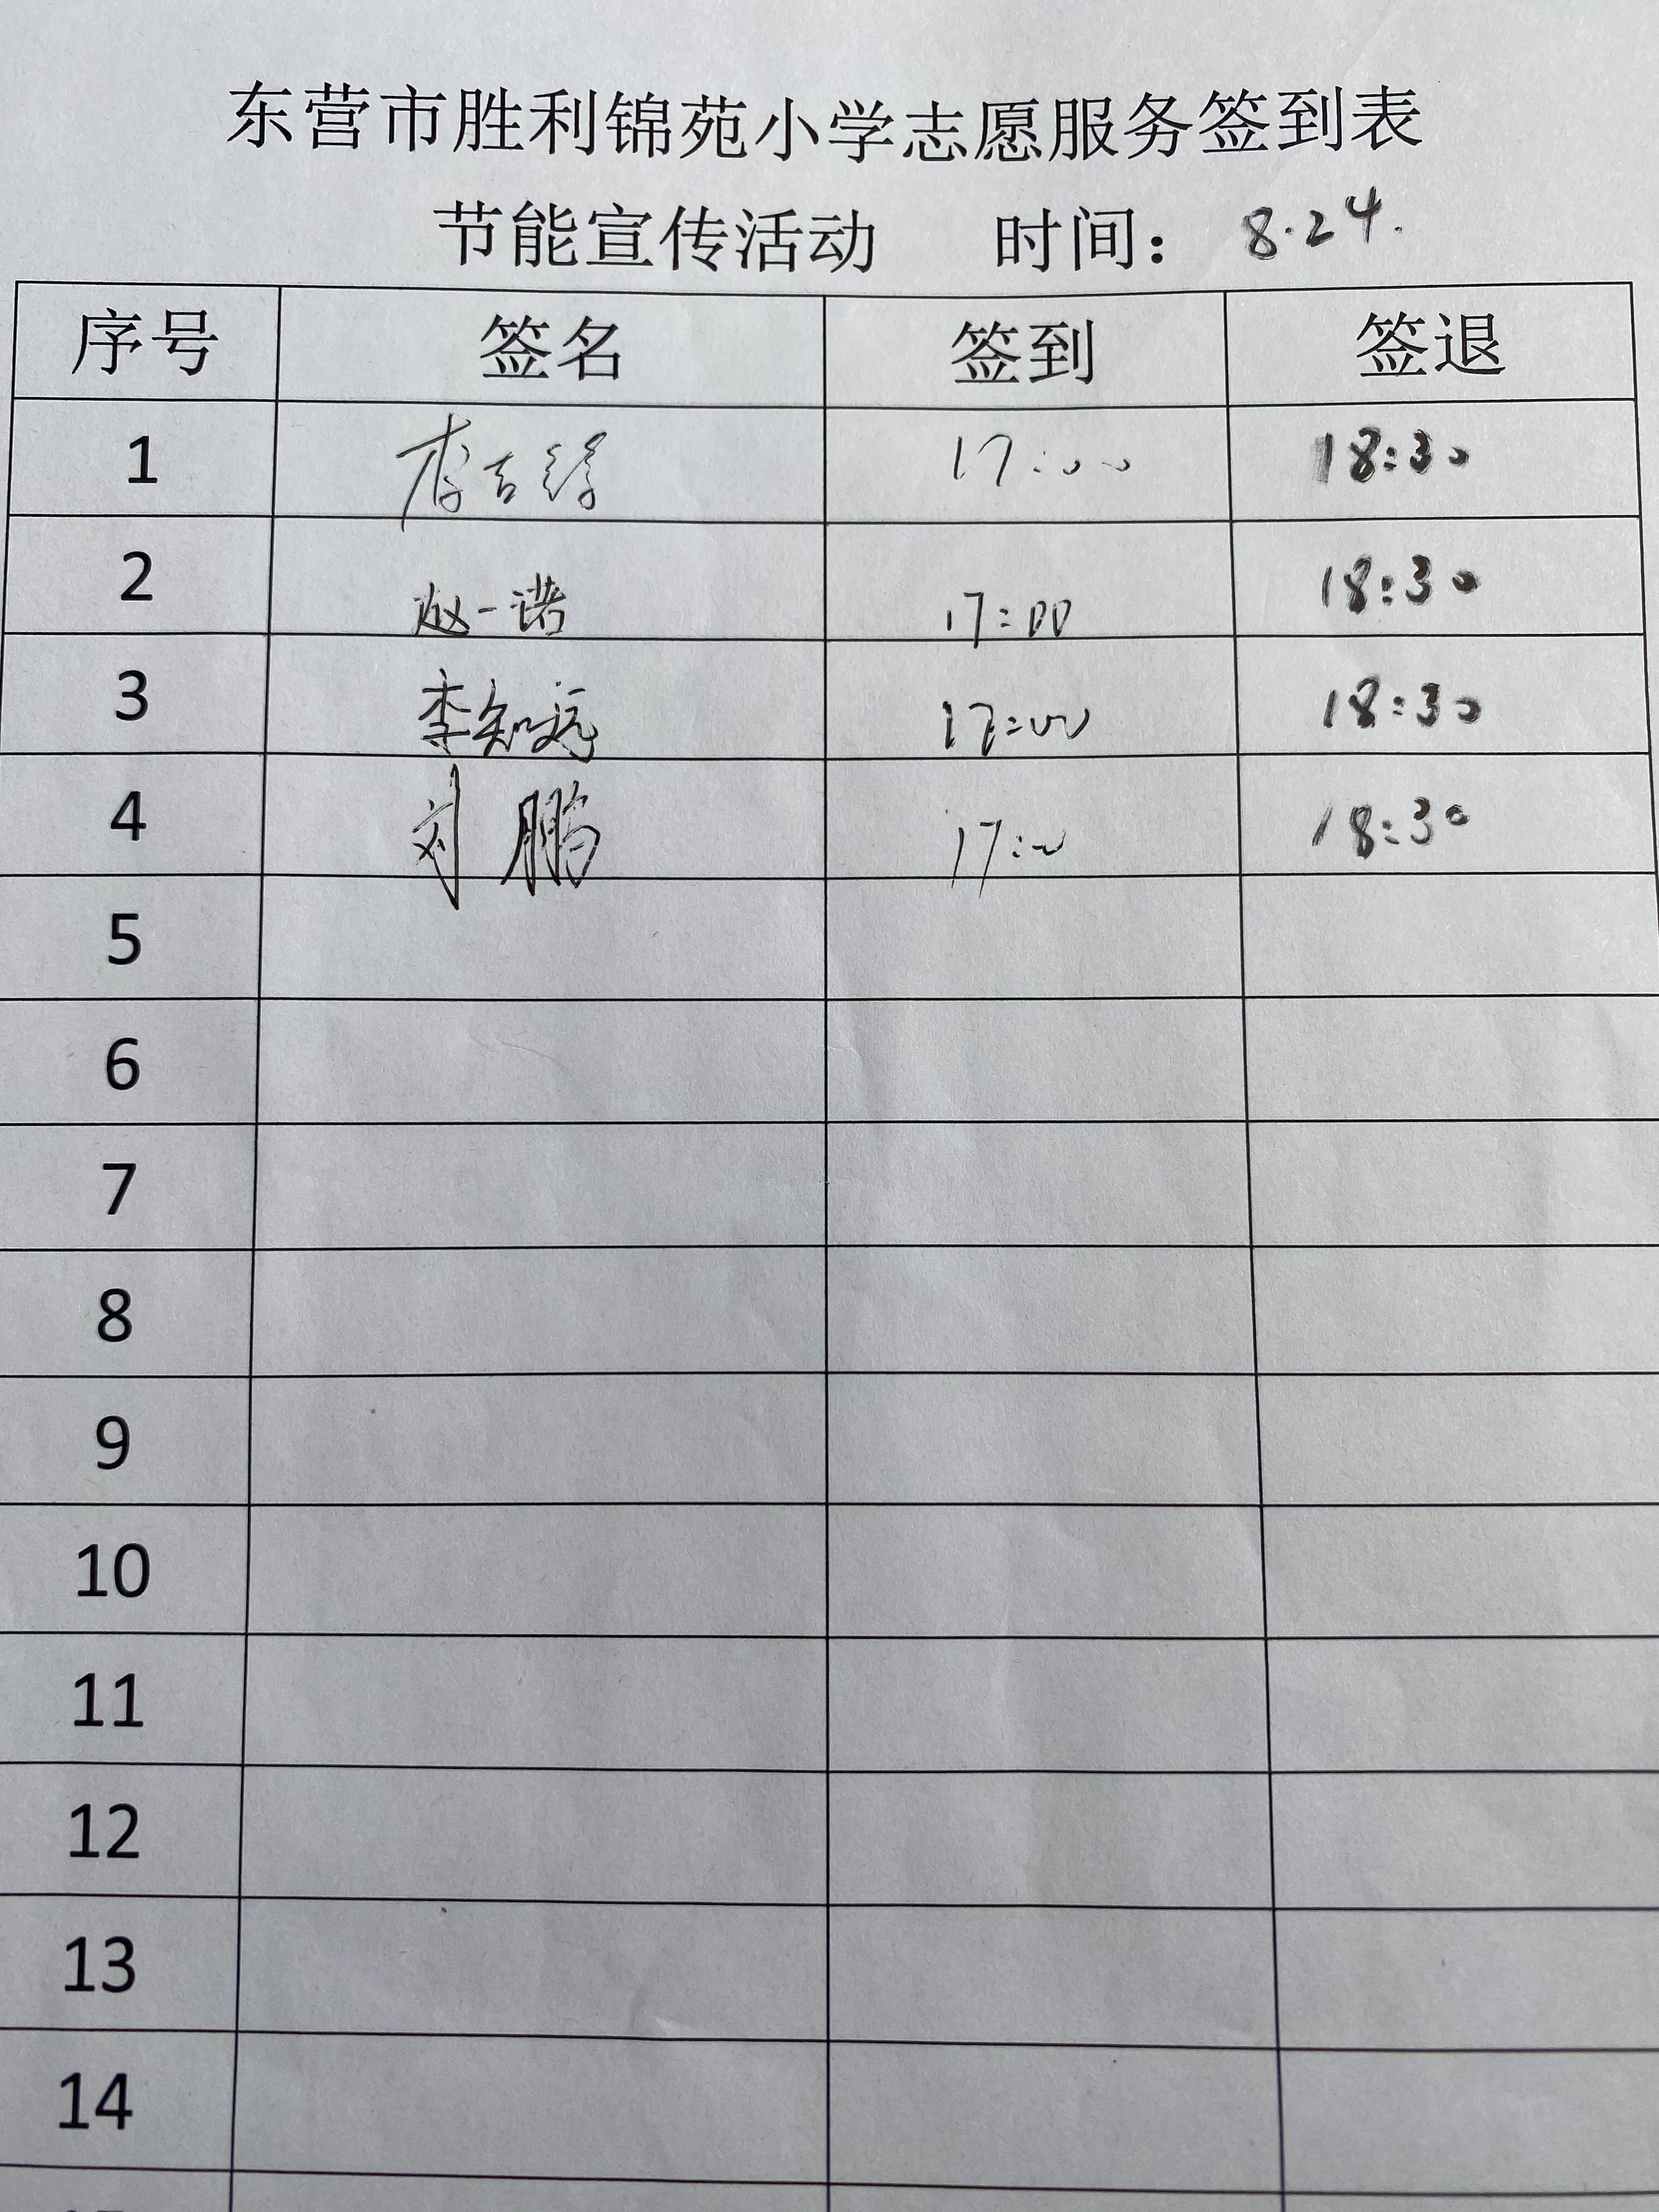 东营市胜利锦苑小学志愿服务签到表
节能宣传活动 时间： 8.24.
序号 签名 签到 签退
1 李吉 17:00 18:30
2 赵一诺 17:00 18:30
3 李知远 17:00 18:30
4 刘鹏 17:00 18:30
5
6
7
8
9
10
11
12
13
14